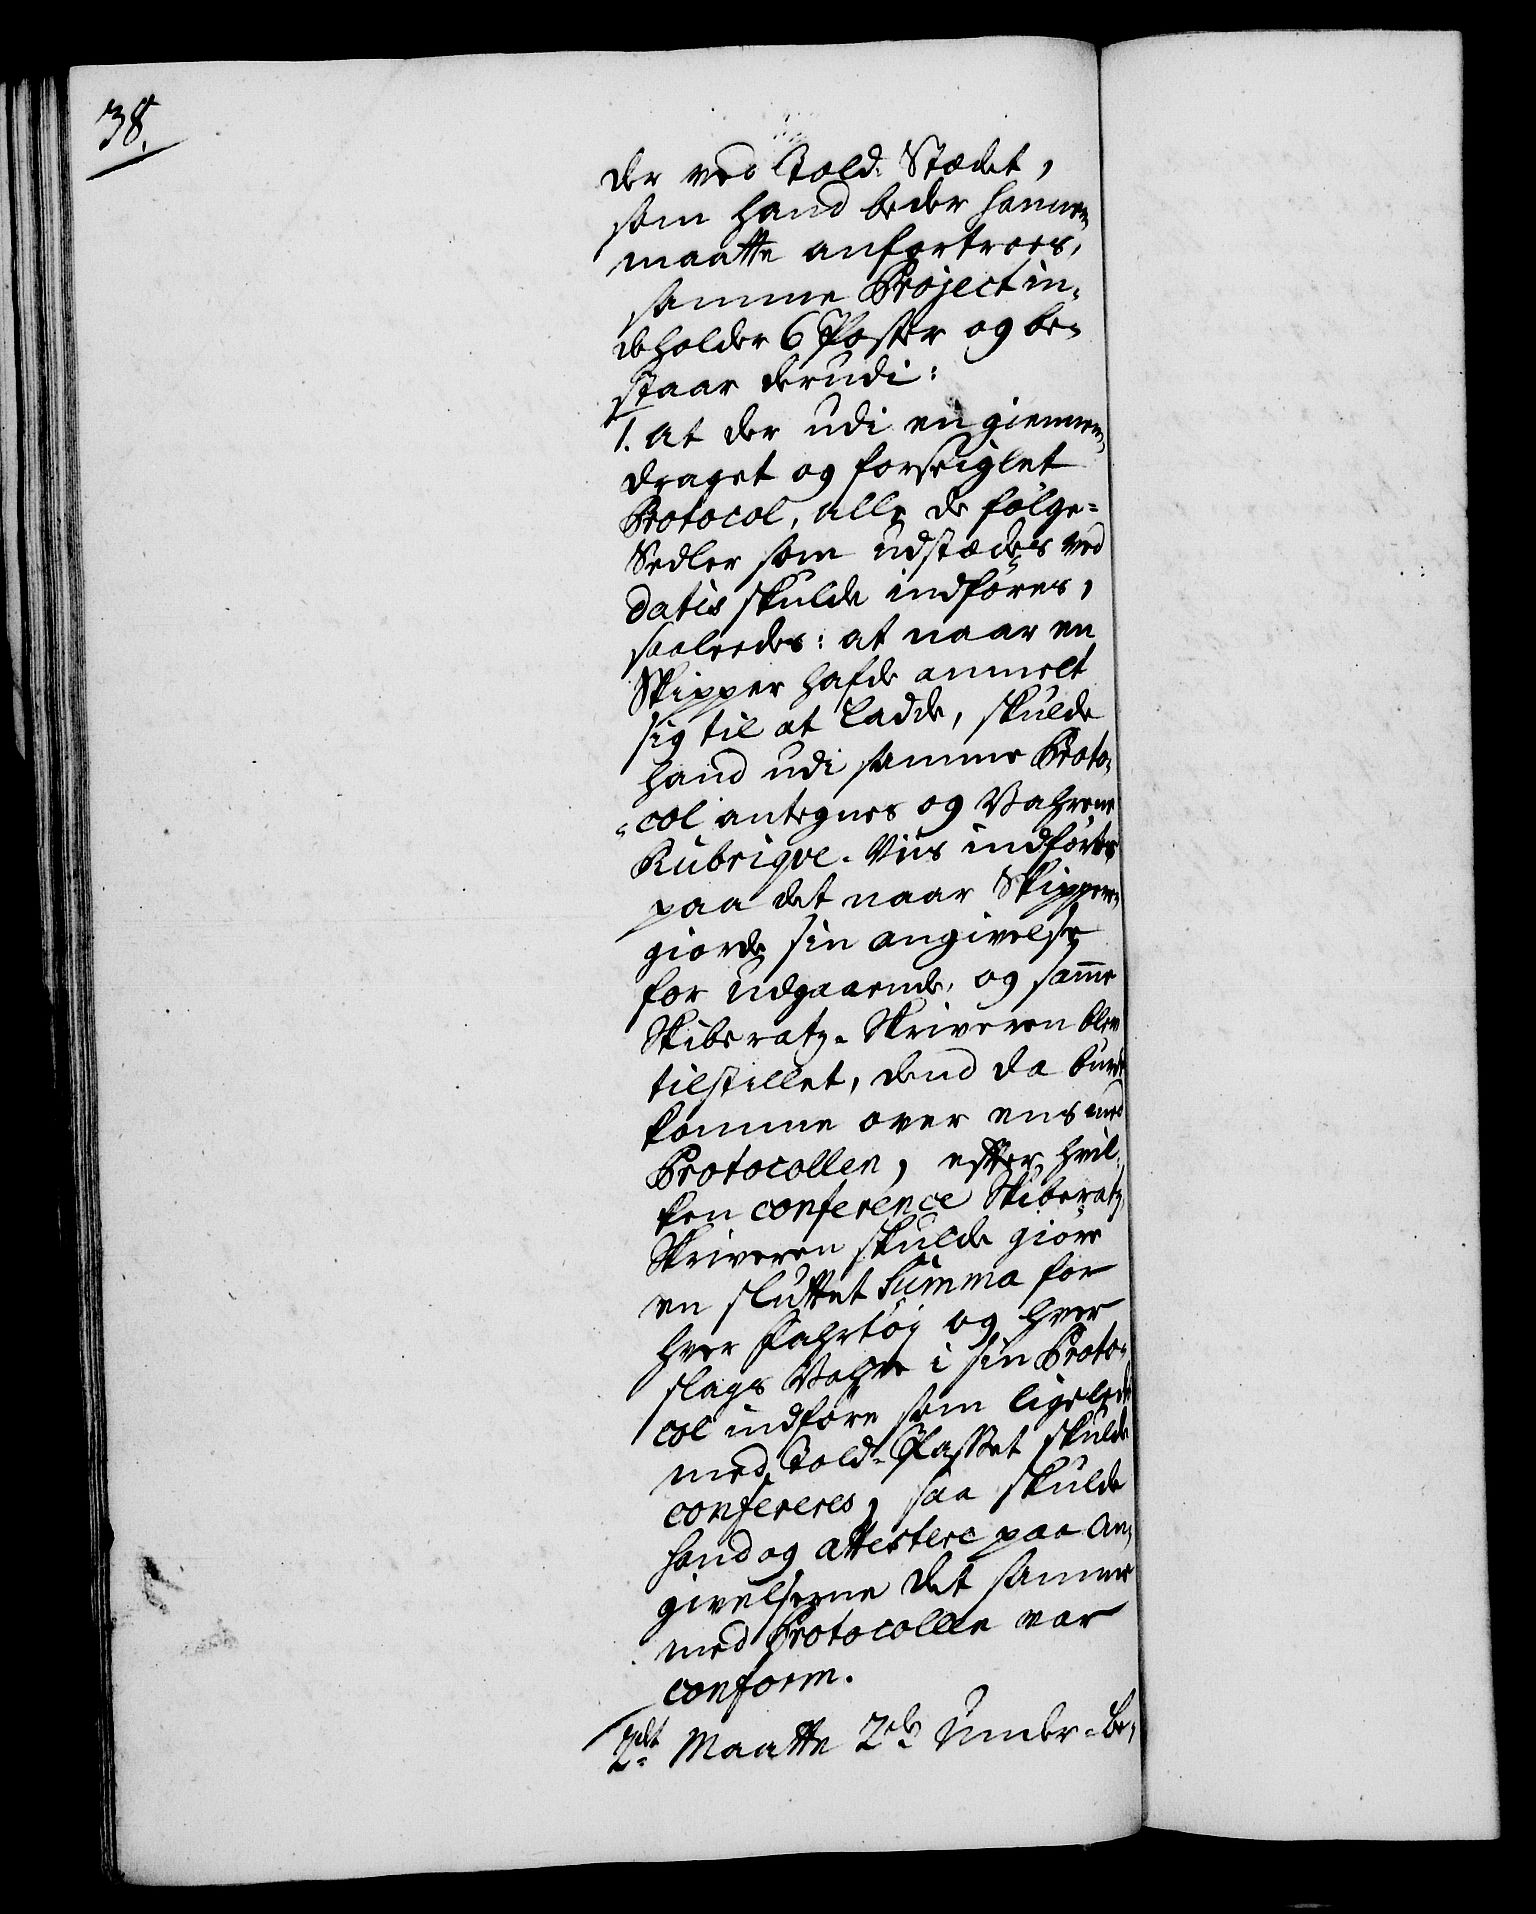 38.
der ved Told-Stædet,
som hand beder hannem
maatte anfortroes,
samme Project in-
deholder 6 Poster og be-
staar derudi:
1. at der udi en giennem-
draget og forseiglet
Protocol, alle de følge-
Sedler som udstædes ved
datis skulde indføres,
saaledes: at naar en
Skipper hafde anmelt
sig til at ladde, skulde
hand udi samme Proto-
-col antegnes og Vahrene
Rubriqve-Viis indføres
paa det naar Skipperen
giorde sin angivelse
for udgaaende, og samme
Skiberatz-Skriveren blev
tilstillet, dend da burde
komme over ens med
Protocollen, efter hvil-
ken conference Skiberatz
Skriveren skulde giøre
en sluttet Summa for
hver Fahrtøj og hver
slags Vahre i sin Proto-
col indføre som ligeledes
med Told-Passet skulde
confereres, saa skulde
hand og attestere paa An-
givelserne det samme
med Protocollen var
conform.
2det Maatte 2de Under-Be-